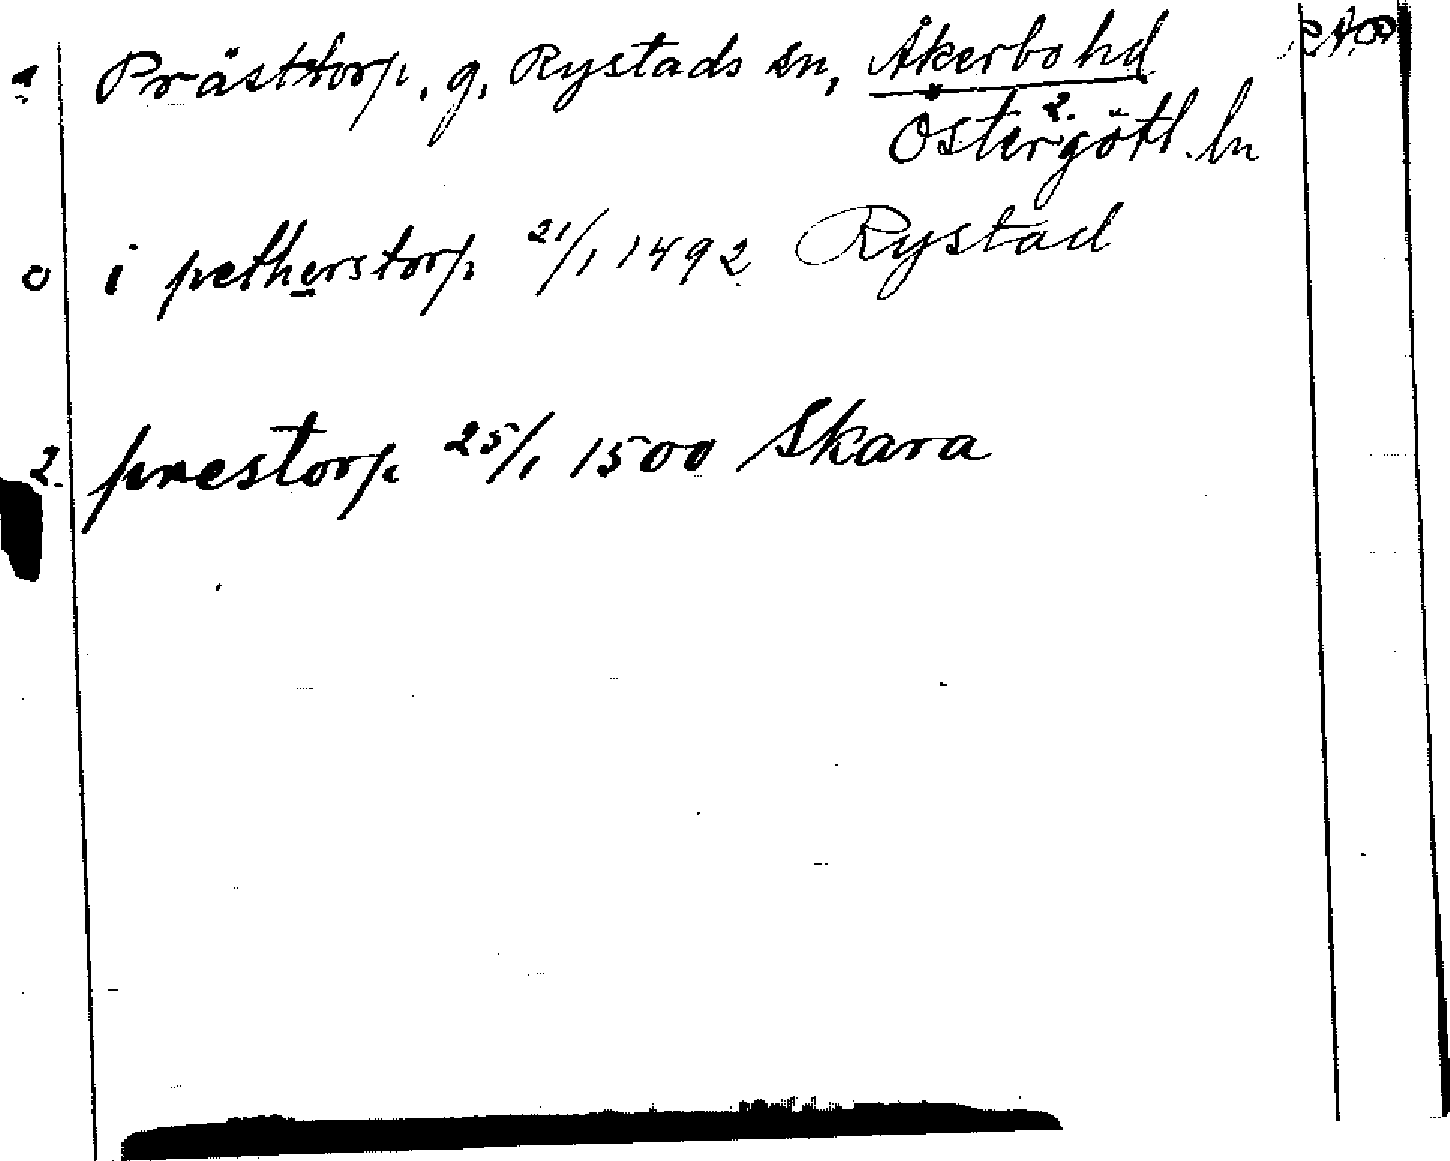 Prästtorp. g. Rystads sn, Åkerbo hd
2.
Östergötl. ln
o i petherstorp 21/1 1492 Rystad
2. prestorp 25/1 1500 Skara